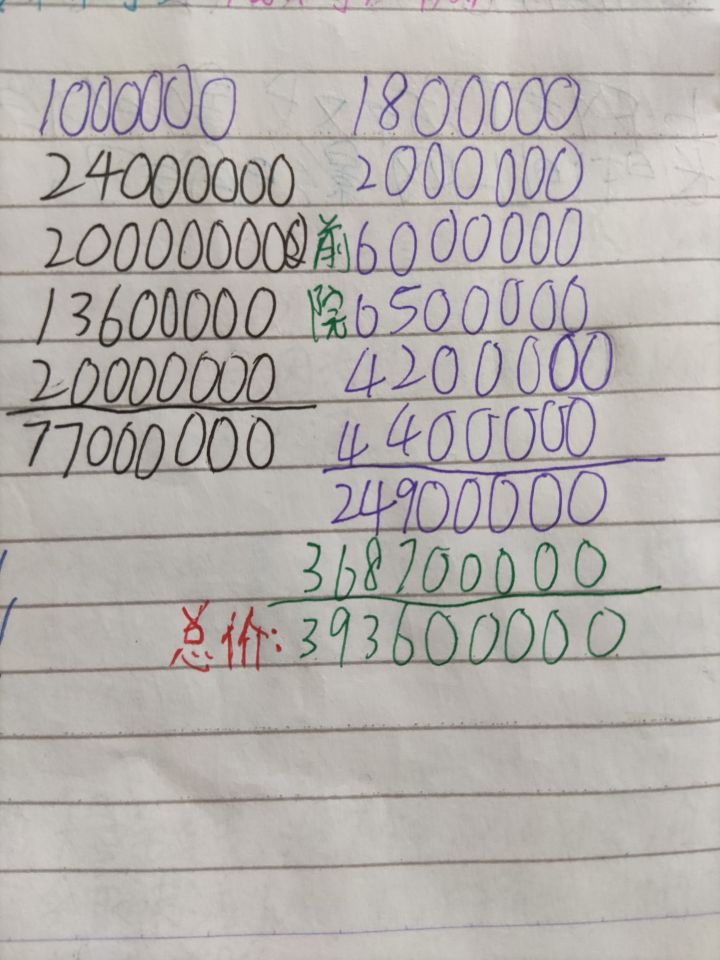 1000000 1800000
24000000 2000000
20000000 前 6000000
13600000 院 6500000
20000000 4200000
77000000 4400000
24900000
368700000
总价:393600000